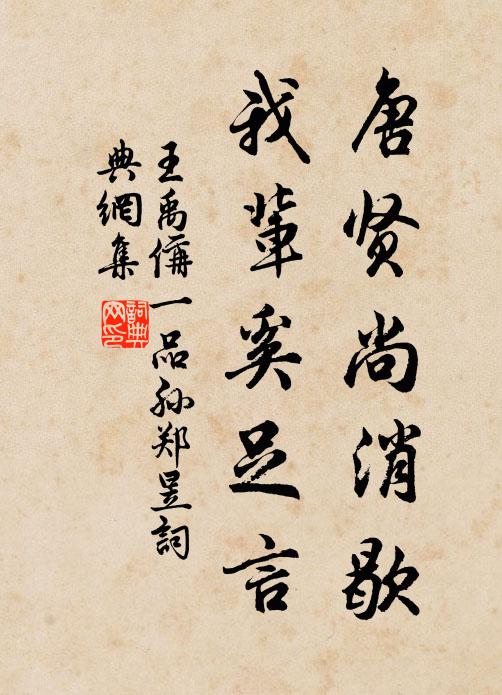 唐贤尚消歇
我辈奚足言
王禹偁一品孙郑昱詞
典網集
詞典網印